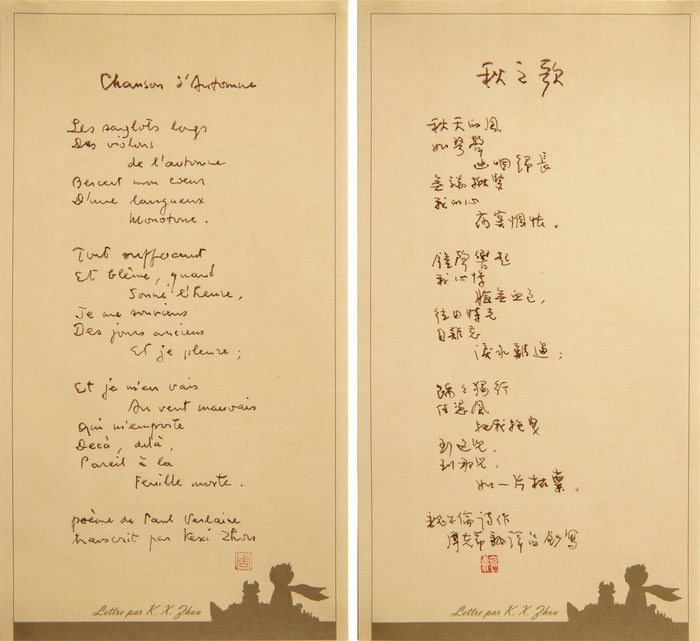 Chanson d'Automne
Les sanglots longs
Des violons
de l'automne
Bercent mon coeur
D'une langueur
Monotone.
Tout suffocant
Et blême, quand
Sonne l'heure,
Je me souviens
Des jours anciens
Et je pleure;
Et je m'en vais
Au vent mauvais
Qui m'emporte
Decà, delà,
Pareil à la
Feuille morte.
poème de Paul Verlaine
transcrit par Kexi Zhou
周
Lettre par K. X. Zhou
秋之歌
秋天的風
如琴聲
幽咽綿長
無端
我的心
惆悵。
鐘聲響起
我心悸
臉無血色,
往日時光
自難忘
淚水難過;
獨行
任惡風
把我拖曳
到這兒,
到那兒,
如一片枯葉。
魏尔倫詩作
周克希翻譯並鈔寫
Lettre par K. X. Zhou